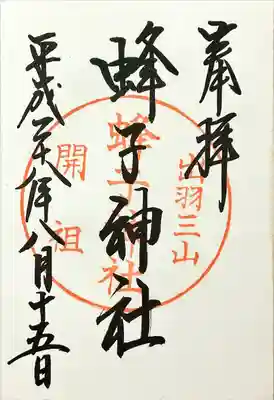 奉拝
蜂子神社
平成二十八年八月十五日
出羽三山
蜂子神社
開祖